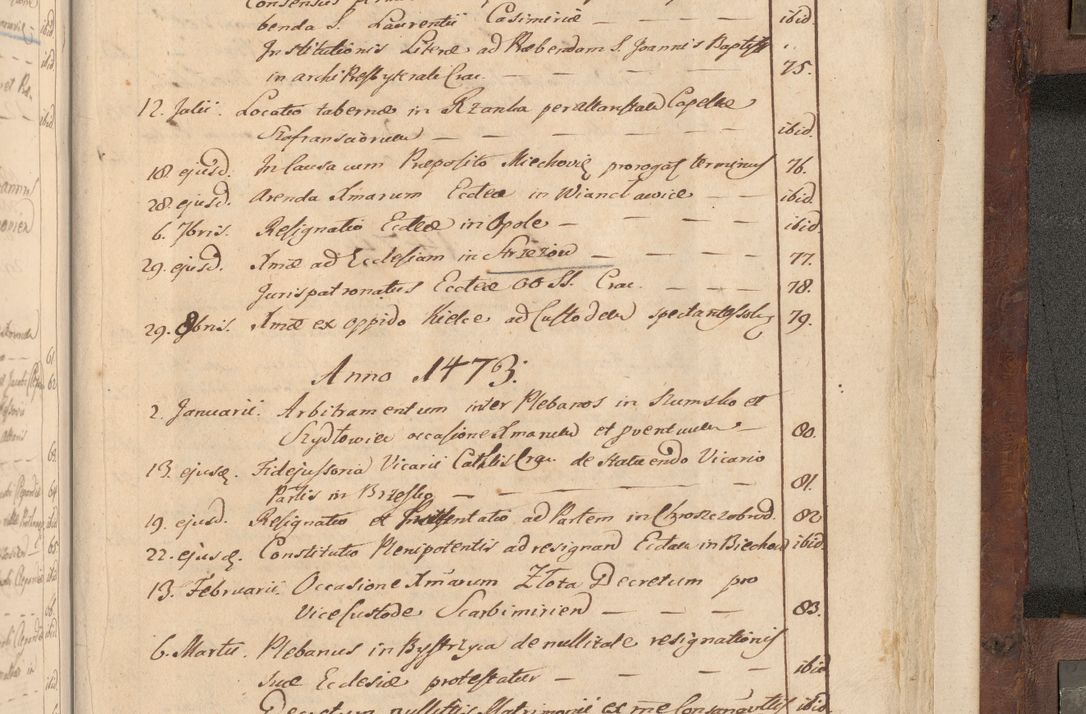 benda S. Laurentii Casimiriæ — ibid.
Institutionis Literæ ad Præbendam S. Joannis Baptistæ
in archipresbyterali Crac. — — — — 75.
12. Julii. Locatio tabernæ in Rzanka per altaristam Capellæ
Szafrancionum — — — — — ibid.
18. ejusd. In Causa cum Præposito Miechovię prorogat terminus 76.
28. ejusd. Arenda Xmarum Eccleæ in Wianclawice — — ibid.
6. 7bris. Resignatio Eccleæ in Opole — — — — ibid
29. ejusd. Xmæ ad Ecclesiam in Strzezow — — — — 77.
Jurispatronatus Eccleæ OO SS. Crac. — — — 78.
29. 8bris. Xmæ ex oppido Kielce ad Custodem spectant 79.
Anno 1473.
2. Januarii. Arbitramentum inter Plebanos in Szumsko et
Szydlowiec occasione Xmarum et pventuum — 80.
13. ejusd. Fidejussoria Vicarii Cathlis de statuendo Vicario
Partis in Brzesko — — — — 81.
19. ejusd. Resignatio et Præsentatio ad Partem in Choszczobrod. 82
22. ejusd. Constitutio Plenipotentis ad resignand Ecclam in Biechow ibid.
13. Februarii. Occasione Xmarum Złota Decretum pro
ViceCustode Scarbimirien — — — 83.
6. Martii. Plebanus in Bystrzyca de nullitate resignationis
suæ Ecclesiæ protestatur — — — ibid
Decretum nullitis Matrimonii ex ibid